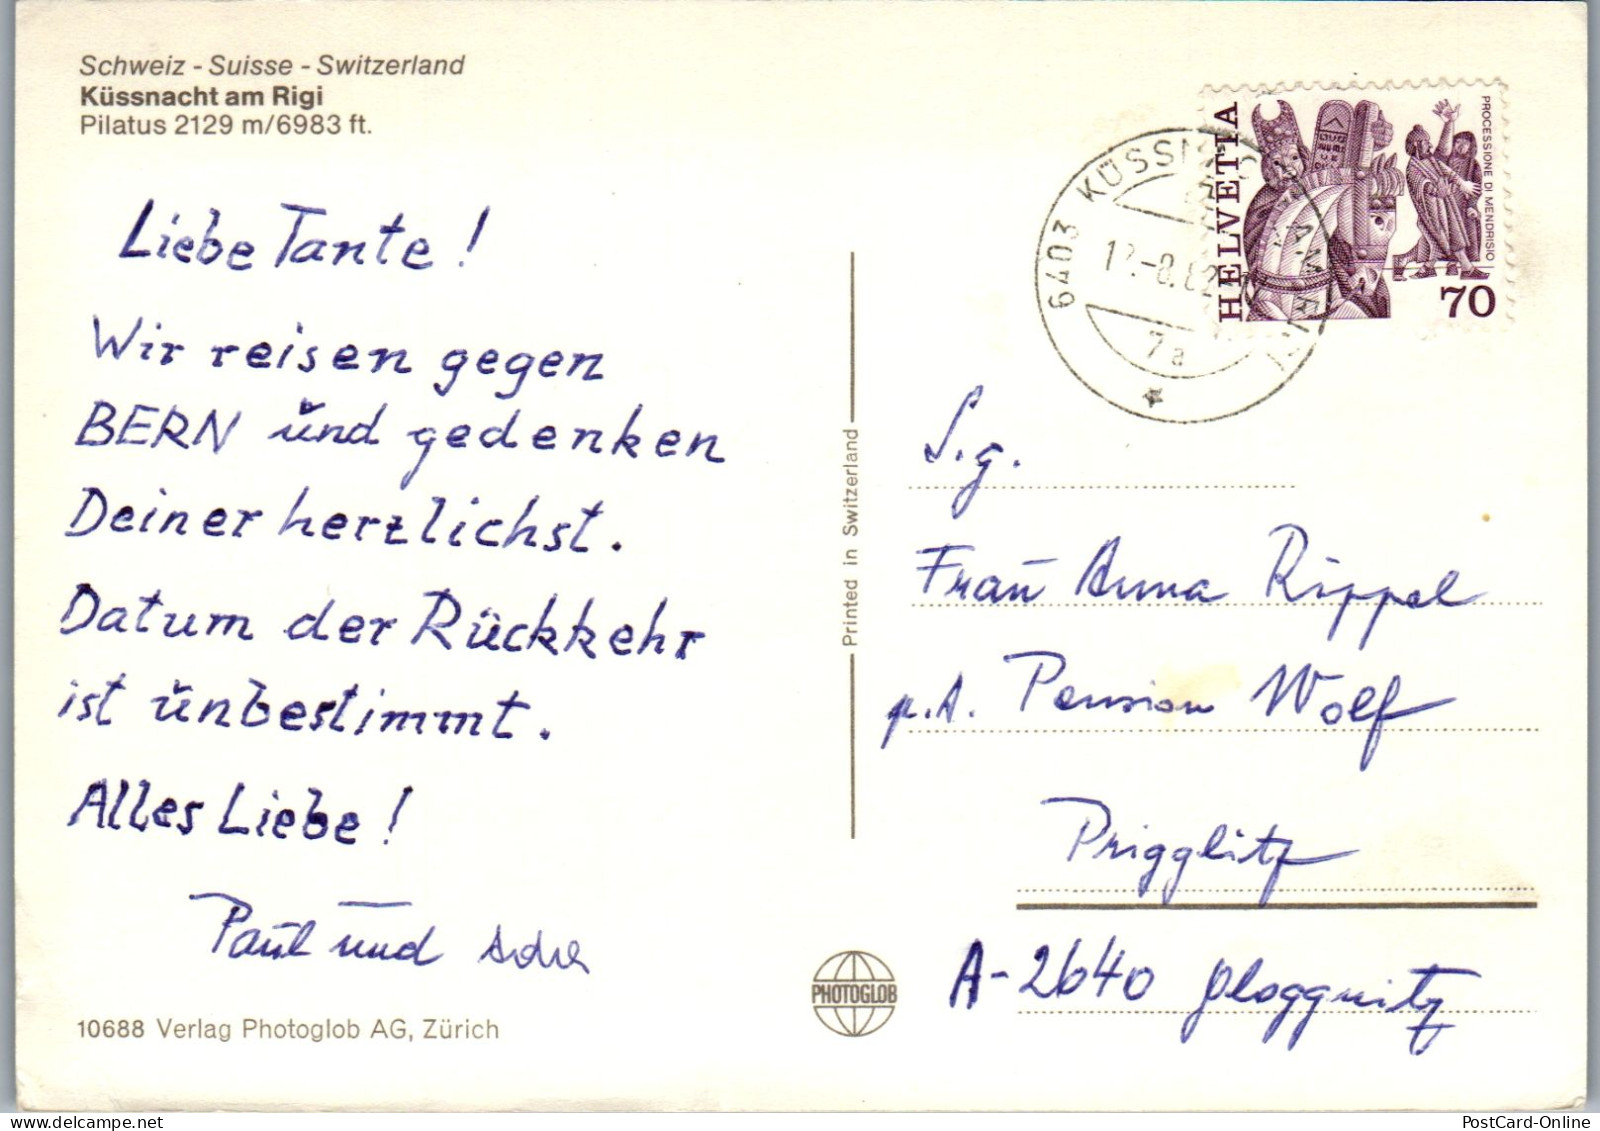 Schweiz - Suisse - Switzerland
Küssnacht am Rigi
Pilatus 2129 m/6983 ft.
Liebe Tante!
Wir reisen gegen
BERN und gedenken
Deiner herzlichst.
Datum der Rückkehr
ist unbestimmt.
Alles Liebe!
Paul und
10688 Verlag Photoglob AG, Zürich
Printed in Switzerland
PHOTOGLOB
HELVETIA
PROCESSIONE DI MENDRISIO
70
6403 KÜSSNACHT AM RIGI
-8.82
7a
S.g.
Frau Anna Rippel
p.A. Pension Wolf
Prigglitz
A-2640 Gloggnitz
PostCard-Online